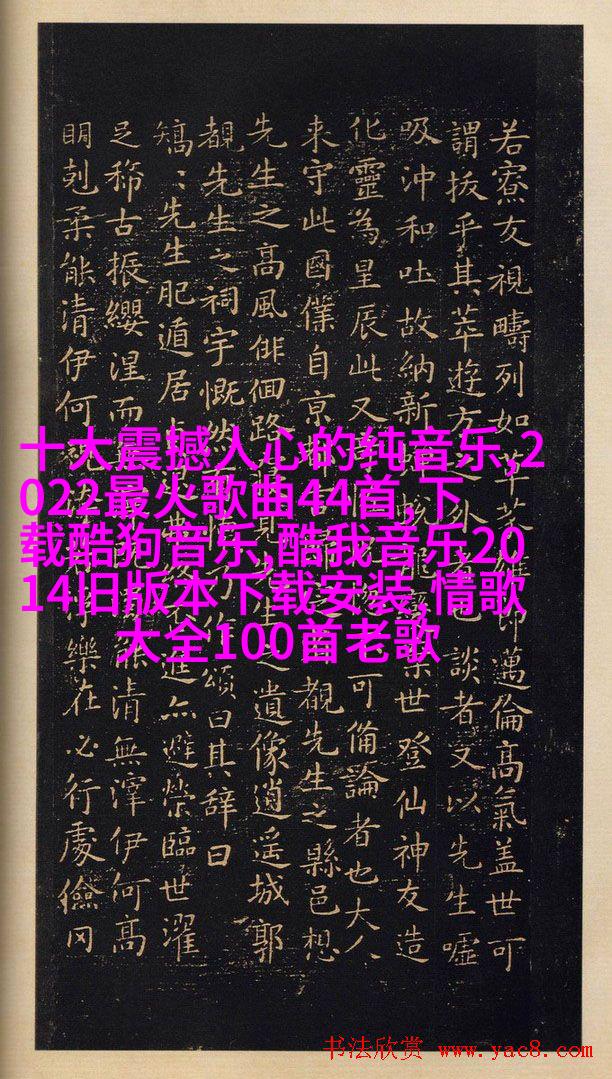 若寮友視疇列如草芥雄節邁倫高氣蓋世可
謂拔乎其萃遊方之外者已談者又以先生噓
吸沖和吐故納新世登仙神友造
化靈為星辰此又可備論者也大人
来守此國僕自京覩先生之縣邑想
先生之高風俳佪路見先生之遺像逍遥城郭
覩先生之祠宇慨然頌曰其辭曰
矯:先生肥遁居進亦避榮臨世濯
足稀古振纓涅而能清無滓伊何高
明剋柔能清伊何樂在必行處儉罔
十大震撼人心的纯音乐,2
022最火歌曲44首,下
载酷狗音乐,酷我音乐20
14旧版本下载安装,情歌
大全100首老歌
书法欣赏 www.yac8.com